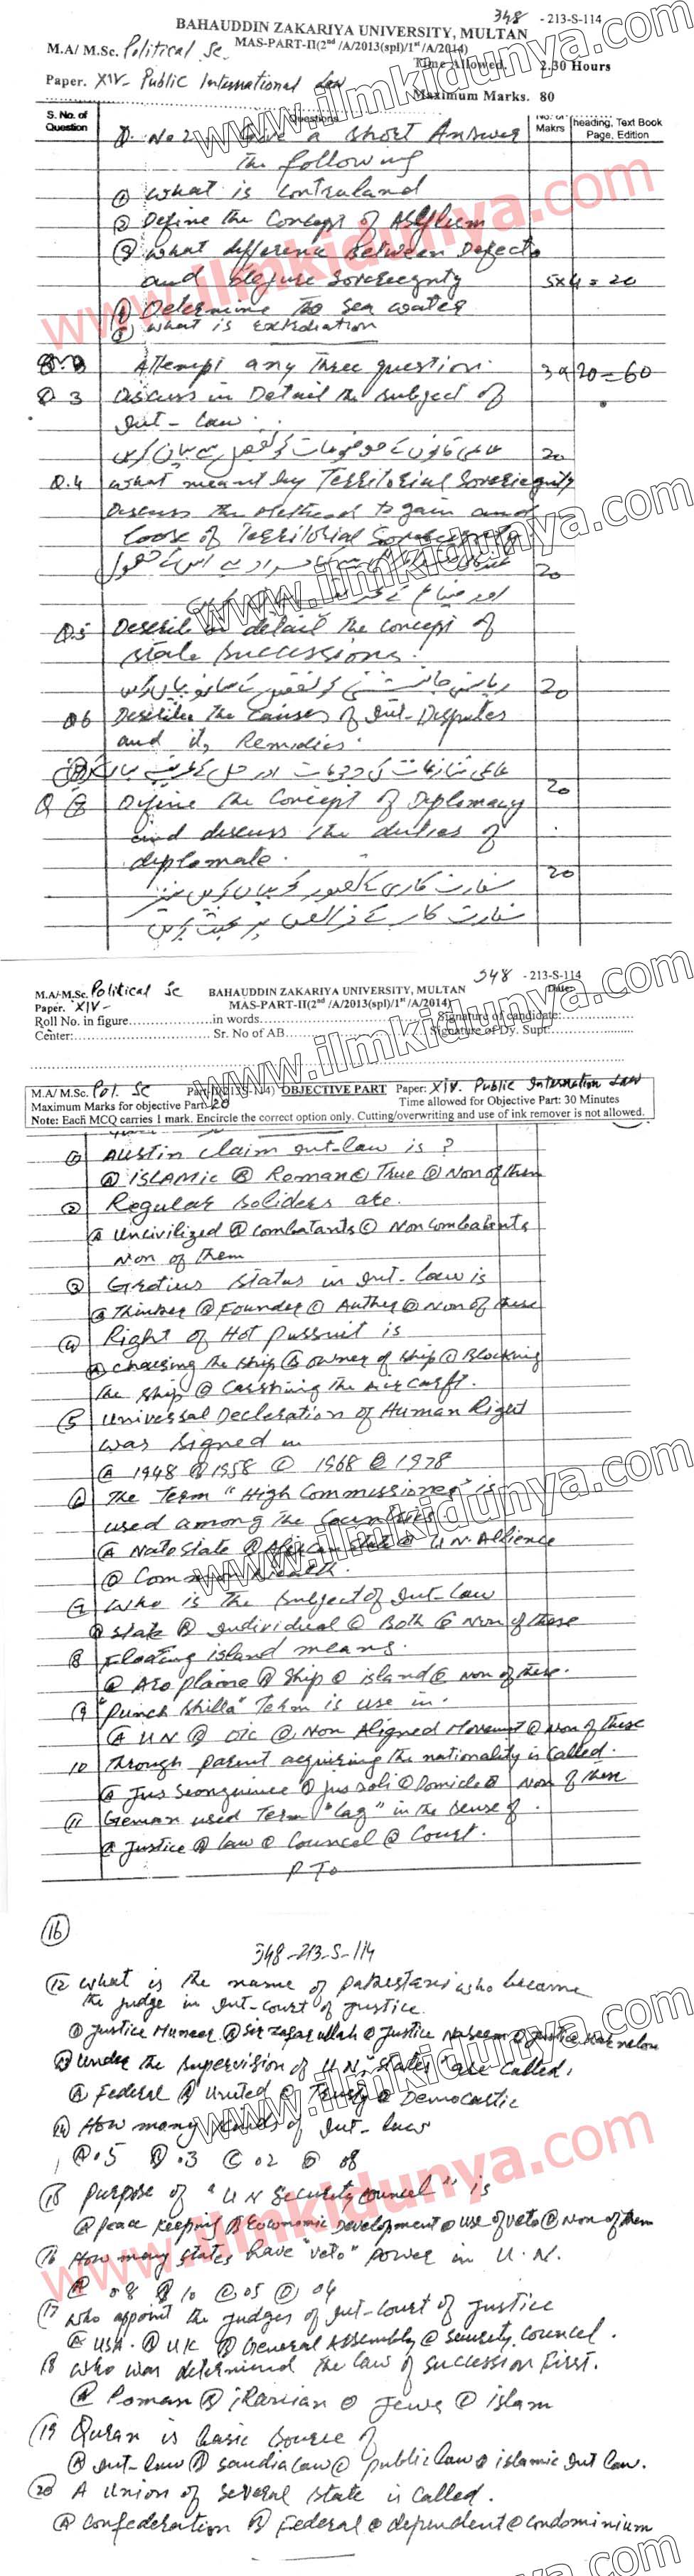 348 - 213-S-114
BAHAUDDIN ZAKARIYA UNIVERSITY, MULTAN
M.A/ M.Sc. Political Sc. MAS-PART-II(2nd /A/2013(spl)/1st/A/2014)
Time Allowed. 2.30 Hours
Paper. XIV- Public International Law
Maximum Marks. 80
S. No. of Question Questions No. of Makrs heading, Text Book Page, Edition
Q. No 2. Give a short Answer
The following
① What is Contraland
② Define the Concept of Asylum
③ What difference Between Defecto
and Dejure Sovereignty 5x4=20
④ Determine The Sea water
⑤ What is extrdiation
Attempt any three question. 3 20=60
Q 3 Discuss in Detail the subject of
Int-Law.
عالمی قانون کے موضوعات کو تفصیل سے بیان کریں 20
Q.4 What meant by Territorial Sovereignty
Discuss the Method to gain and
loose of Territorial Sovereignty
سے کیا مراد ہے اس کے حصول 20
اور ضیاع کے
Q.5 Describe in detail the concept of
state Successions.
ریاستی جانشینی کو تفصیل کے ساتھ بیان کریں 20
Q6 Describe the Causes of Int-Disputes
and its Remidies.
عالمی تنازعات کی وجوہات اور حل کے طریقے بیان کریں
Q 8 Define the Concept of Diplomacy 20
and discuss the duties of
diplomate.
سفارت کاری کے تصور کو بیان کریں نیز 20
سفارت کار کے فرائض پر بحث کریں
348 - 213-S-114
M.A/-M.Sc. Political Sc BAHAUDDIN ZAKARIYA UNIVERSITY, MULTAN Date:
Paper. XIV- MAS-PART-II(2nd /A/2013(spl)/1st/A/2014)
Roll No. in figure in words Signature of candidate:
Center: Sr. No of AB Signature of Dy. Supt:
M.A/ M.Sc. Pol. Sc OBJECTIVE PART Paper: XIV. Public Internation Law
Maximum Marks for objective Part: 20 Time allowed for Objective Part: 30 Minutes
Note: Each MCQ carries 1 mark. Encircle the correct option only. Cutting/overwriting and use of ink remover is not allowed.
① Austin claim int-law is ?
Ⓐ ISLAMIC Ⓑ Roman Ⓒ True Ⓓ Non of them
② Regular Soliders are.
Ⓐ Uncivilized Ⓑ Combatants Ⓒ Non Combatents
Non of them
③ Grotius status in int-law is
Ⓐ Thinker Ⓑ Founder Ⓒ Auther Ⓓ Non of these
④ Right of Hot Pussuit is
Ⓐ Chausing the ship Ⓑ owner of ship Ⓒ Blocking
the ship Ⓓ Casshing the Air Carft.
⑤ Universal Declaration of Human Right
was signed in
Ⓐ 1948 Ⓑ 1958 Ⓒ 1968 Ⓓ 1978
⑥ The Term "High Commissioner" is
used among the Countries
Ⓐ Nato State Ⓑ African State Ⓒ U.N. Allience
Ⓓ Common wealth.
⑦ Who is the Subject of Int-Law
Ⓐ State Ⓑ Individual Ⓒ Both Ⓓ Non of these
8 Floating island means.
Ⓐ Aro plaine Ⓑ Ship Ⓒ island Ⓓ Non of these.
⑨ "Punch Shilla" Term is use in.
Ⓐ U N Ⓑ OIC Ⓒ Non Aligned Movement Ⓓ Non of these
10 Through parent acquiring the nationality is Called.
Ⓐ Jus Seonguince Ⓑ jus soli Ⓒ Domicle Ⓓ Non of them
⑪ Geman used Term "Lag" in the Sense of.
Ⓐ Justice Ⓑ Law Ⓒ Councel Ⓓ Court.
P T o
⑯
348-213-S-114
⑫ What is the name of pakestani who became
the judge in Int-Court of Justice.
Ⓐ Justice Muneer Ⓑ Sir Zafar ullah Ⓒ Justice Naseem Ⓓ
⑬ Under the Supervision of U.N, "States" are Called.
Ⓐ Federal Ⓑ United Ⓒ Trusty Ⓓ Democastic
⑭ How many kinds of Int-Law
Ⓐ 05 Ⓑ 03 Ⓒ 02 Ⓓ 08
⑮ Purpose of "U N Security Councel" is
Ⓐ peace keeping Ⓑ Ecwonomic Development Ⓒ Use of veto Ⓓ Non of them
16 How many states have "veto" power in U.N.
Ⓐ 08 Ⓑ 10 Ⓒ 05 Ⓓ 04
⑰ Who appoint the judges of Int-Court of Justice
Ⓐ USA. Ⓑ UK Ⓒ General Assembly Ⓓ Security Councel.
18 Who was determined the law of Succession First.
Ⓐ Roman Ⓑ iRanian Ⓒ Jews Ⓓ islam
⑲ Quran is basic Source of
Ⓐ Int-law Ⓑ Saudia Law Ⓒ Public law Ⓓ islamic Int Law.
⑳ A Union of Several State is Called.
Ⓐ Confederation Ⓑ Federal Ⓒ dependent Ⓓ Condominium
www.ilmkidunya.com